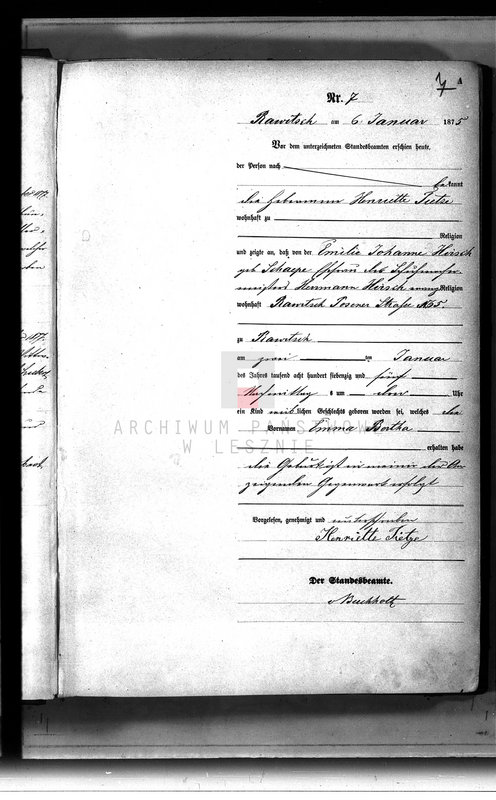 7
A
Nr. 7
Rawitsch am 6 Januar 1875
Vor dem unterzeichneten Standesbeamten erschien heute,
der Person nach
bekannt
die Hebamme Henriette Tietze
wohnhaft zu
Religion
und zeigte an, daß von der Emilie Johanne Hirsch
geb Schaepe Ehefrau des Schuhmacher
meisters Hermann Hirsch evang Religion
wohnhaft Rawitsch Posener Straße
zu Rawitsch
am zwei ten Januar
des Jahres tausend acht hundert siebenzig und fünf
Nachmittag s um Uhr
ein Kind weiblichen Geschlechts geboren worden sei, welches die
Vornamen Emma Bertha
ARCHIWUM PAŃSTWOWE
W LESZNIE
erhalten habe
die Geburt ist in meiner der An
zeigenden Gegenwart erfolgt
Vorgelesen, genehmigt und unterschrieben
Henriette Tietze
Der Standesbeamte.
v Buchholtz